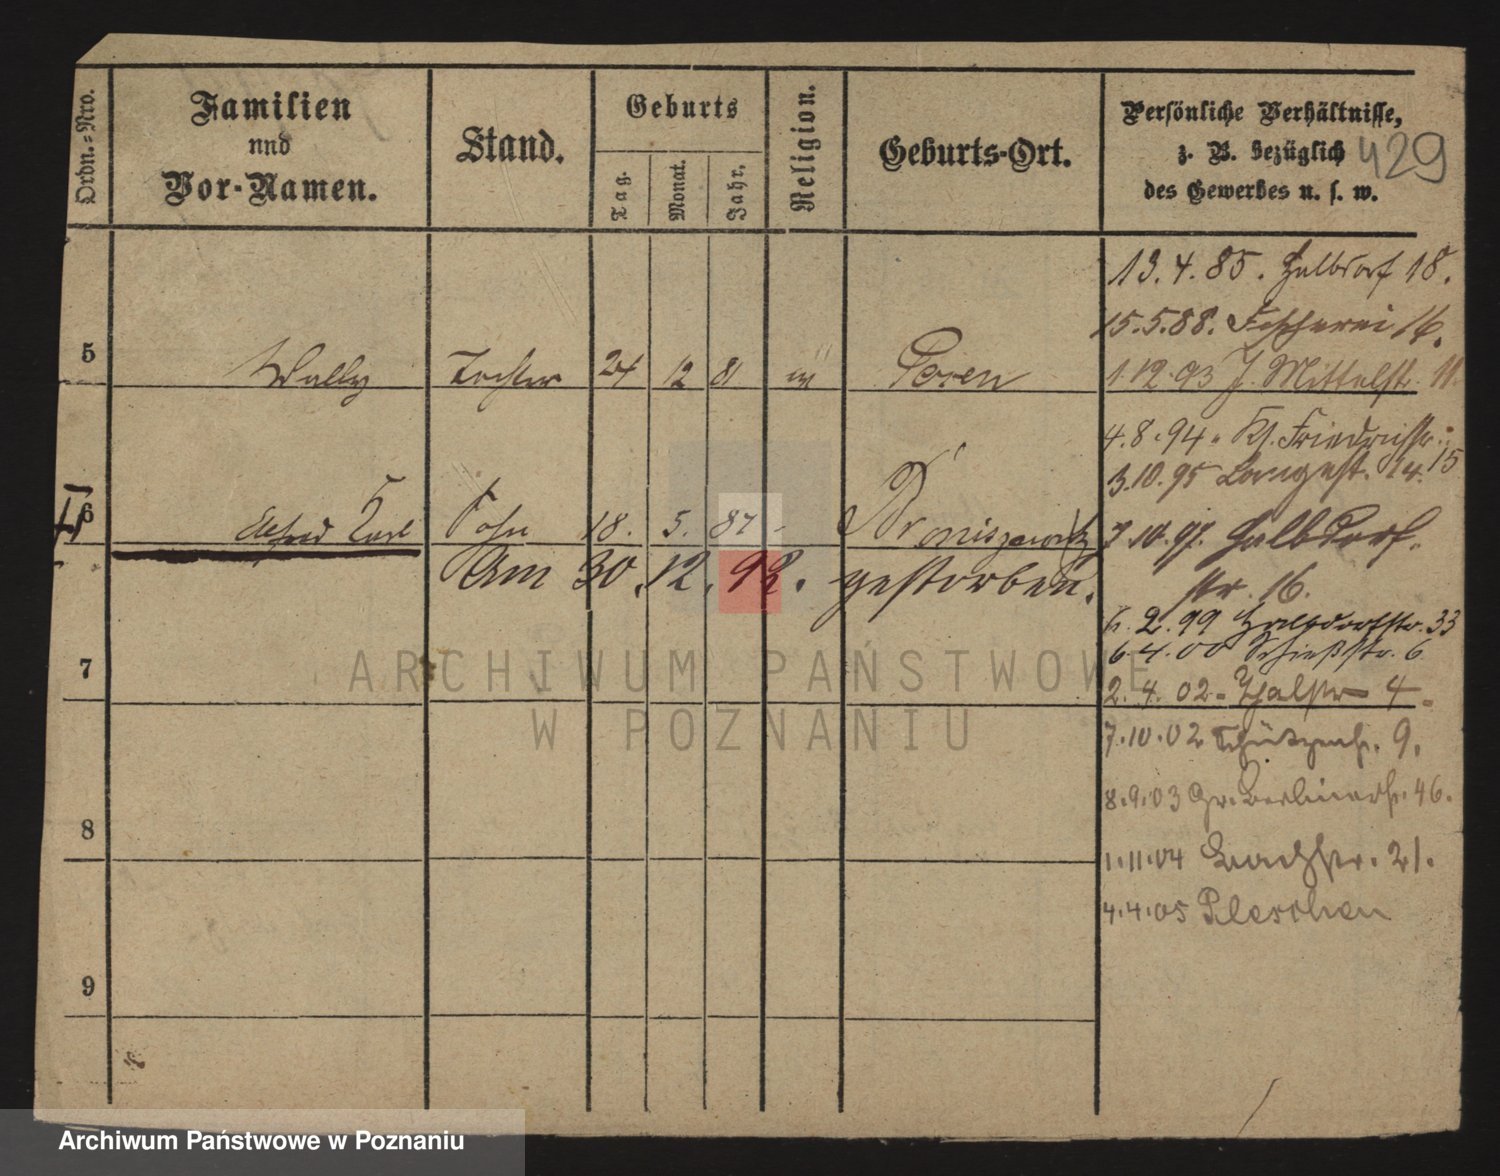 Ordn.=Nro.
Familien
und
Vor-Namen.
Stand.
Geburts
Tag.
Monat.
Jahr.
Religion.
Geburts-Ort.
Persönliche Verhältnisse,
z. B. bezüglich
des Gewerbes u. s. w.
429
13.4.85. Halbdorf 18.
15.5.88. Fischerei 16.
5 Wally Tochter 24 12 81 Posen
1.12.93 Mittelstr. 11.
4.8.94. Kl. Friedrichstr.
3.10.95 Langest. 14. 15
6 Alfred Karl Sohn 18. 5. 87 - Broniszewitz
7.10.97. Halbdorf-
str. 16.
Am 30.12.98. gestorben.
6.2.99 Halbdorfstr. 33
6.4.00 Schießstr. 6
7
2.4.02- Thalstr 4-
7.10.02 Schützenstr. 9.
8.9.03 Gr. Berlinerstr. 46.
8
1.11.04 Bachstr. 21.
4.4.05 Pleschen
9
ARCHIWUM PAŃSTWOWE
W POZNANIU
Archiwum Państwowe w Poznaniu